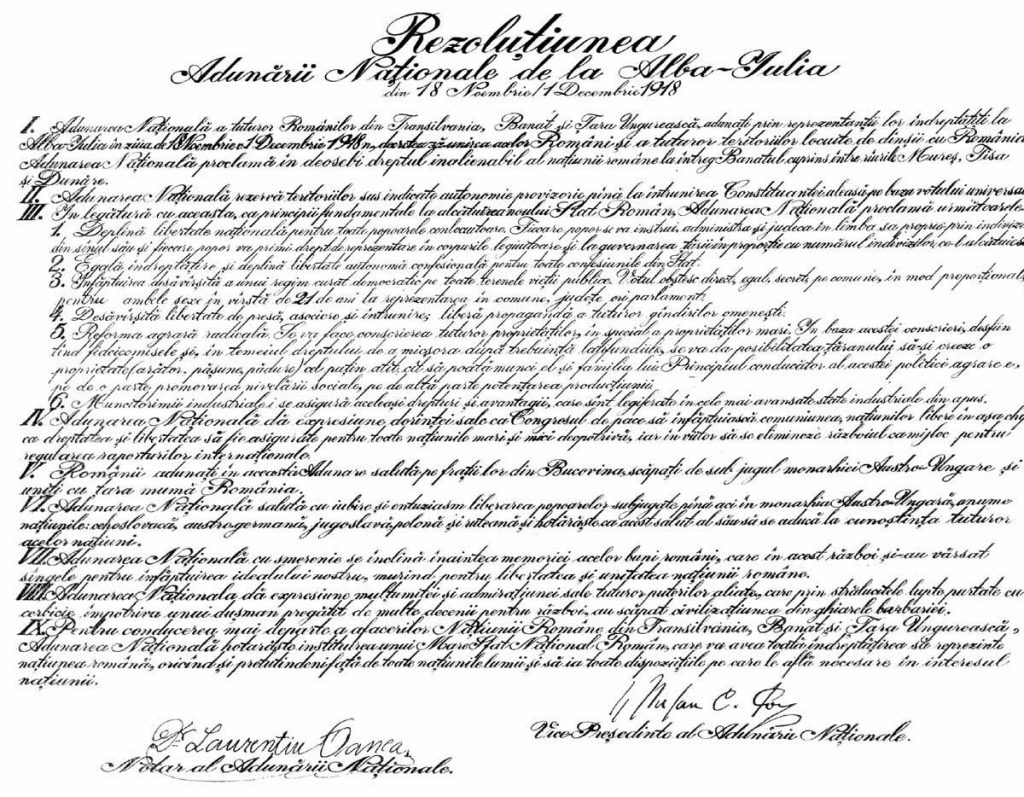 Rezoluțiunea
Adunării Naționale de la Alba-Iulia
din 18 Noembrie/1 Decembrie 1918
I. Adunarea Națională a tuturor Românilor din Transilvania, Banat și Țara Ungurească, adunați prin reprezentanții lor îndreptățiți la
Alba-Iulia în ziua de 18 Noembrie/1 Decembrie 1918, decretează unirea acelor Români și a tuturor teritoriilor locuite de dînșii cu România.
Adunarea Națională proclamă în deosebi dreptul inalienabil al națiunii române la întreg Banatul cuprins între rîurile Mureș, Tisa
și Dunăre.
II. Adunarea Națională rezervă teritoriilor sus indicate autonomie provizorie pînă la întrunirea Constituantei aleasă pe baza votului universal
III. În legătură cu aceasta, ca principii fundamentale la alcătuirea noului Stat Român, Adunarea Națională proclamă următoarele:
1. Deplină libertate națională pentru toate popoarele conlocuitoare. Fiecare popor se va instrui, administra și judeca în limba sa proprie prin indivizi
din sînul său și fiecare popor va primi drept de reprezentare în corpurile legiuitoare și la guvernarea țării în proporție cu numărul indivizilor ce-l alcătuiesc
2. Egală îndreptățire și deplină libertate autonomă confesională pentru toate confesiunile din Stat.
3. Înfăptuirea desăvîrșită a unui regim curat democratic pe toate terenele vieții publice. Votul obștesc direct, egal, secret, pe comune, în mod proporțional,
pentru ambele sexe în vîrstă de 21 de ani la reprezentarea în comune, județe ori parlament.
4. Desăvîrșită libertate de presă, asociere și întrunire; liberă propagandă a tuturor gîndirilor omenești.
5. Reforma agrară radicală. Se va face conscrierea tuturor proprietăților, în special a proprietăților mari. În baza acestei conscrieri, desfiin
țînd fideicomisele și, în temeiul dreptului de a micșora după trebuință latifundiile, se va da posibilitatea țăranului să-și creeze o
proprietate (arător, pășune, pădure) cel puțin atît cît să poată munci el și familia lui. Principiul conducător al acestei politici agrare e,
pe de o parte promovarea nivelării sociale, pe de altă parte potențarea producțiunii.
6. Muncitorimii industriale i se asigură aceleași drepturi și avantagii, care sînt legiferate în cele mai avansate state industriale din apus.
IV. Adunarea Națională dă expresiune dorinței sale ca Congresul de pace să înfăptuiască comuniunea națiunilor libere în așa chip
ca dreptatea și libertatea să fie asigurate pentru toate națiunile mari și mici deopotrivă, iar în viitor să se elimineze războiul ca mijloc pentru
regularea raporturilor internaționale.
V. Românii adunați în această Adunare salută pe frații lor din Bucovina, scăpați de sub jugul monarhiei Austro-Ungare și
uniți cu țara mumă România.
VI. Adunarea Națională salută cu iubire și entuziasm liberarea popoarelor subjugate pînă aci în monarhia Austro-Ungară, anume
națiunile: cehoslovacă, austro-germană, jugoslavă, polonă și ruteană și hotărăște ca acest salut al său să se aducă la cunoștința tuturor
acelor națiuni.
VII. Adunarea Națională cu smerenie se închină înaintea memoriei acelor buni români, care în acest război și-au vărsat
sîngele pentru înfăptuirea idealului nostru, murind pentru libertatea și unitatea națiunii române.
VIII. Adunarea Națională dă expresiune mulțumitei și admirațiunei sale tuturor puterilor aliate, care prin strălucitele lupte purtate cu
cerbicie împotriva unui dușman pregătit de multe decenii pentru război, au scăpat civilizațiunea din ghiarele barbariei.
IX. Pentru conducerea mai departe a afacerilor Națiunii Române din Transilvania, Banat și Țara Ungurească,
Adunarea Națională hotărăște instituirea unui Mare Sfat Național Român, care va avea toată îndreptățirea să reprezinte
națiunea română, oricînd și pretutindeni față de toate națiunile lumii și să ia toate dispozițiile pe care le află necesare în interesul
națiunii.
Ștefan C. Pop
Vice-Președinte al Adunării Naționale.
Dr. Laurențiu Oanea,
Notar al Adunării Naționale.